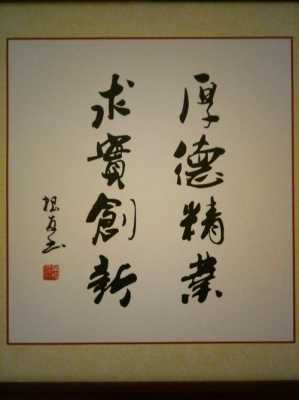 厚德精業
求實創新